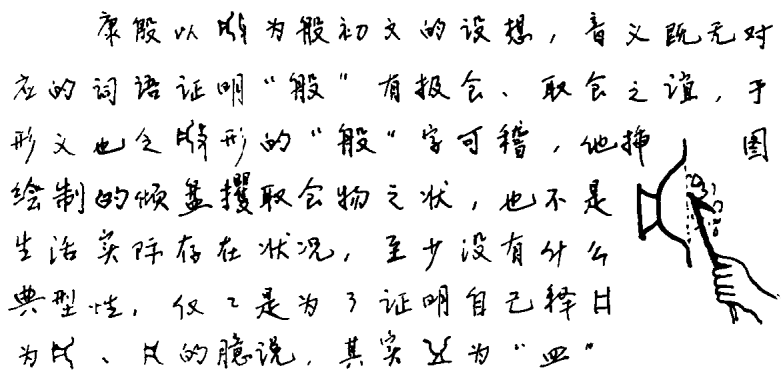 康殷以为般初文的设想，音义既无对
应的词语证明“般”有报食、取食之谊，于
形义也乏形的“般”字可稽，他插图
绘制的倾盘攫取食物之状，也不是
生活实际存在状况，至少没有什么
典型性，仅仅是为了证明自己释
为、的臆说，其实为“皿”